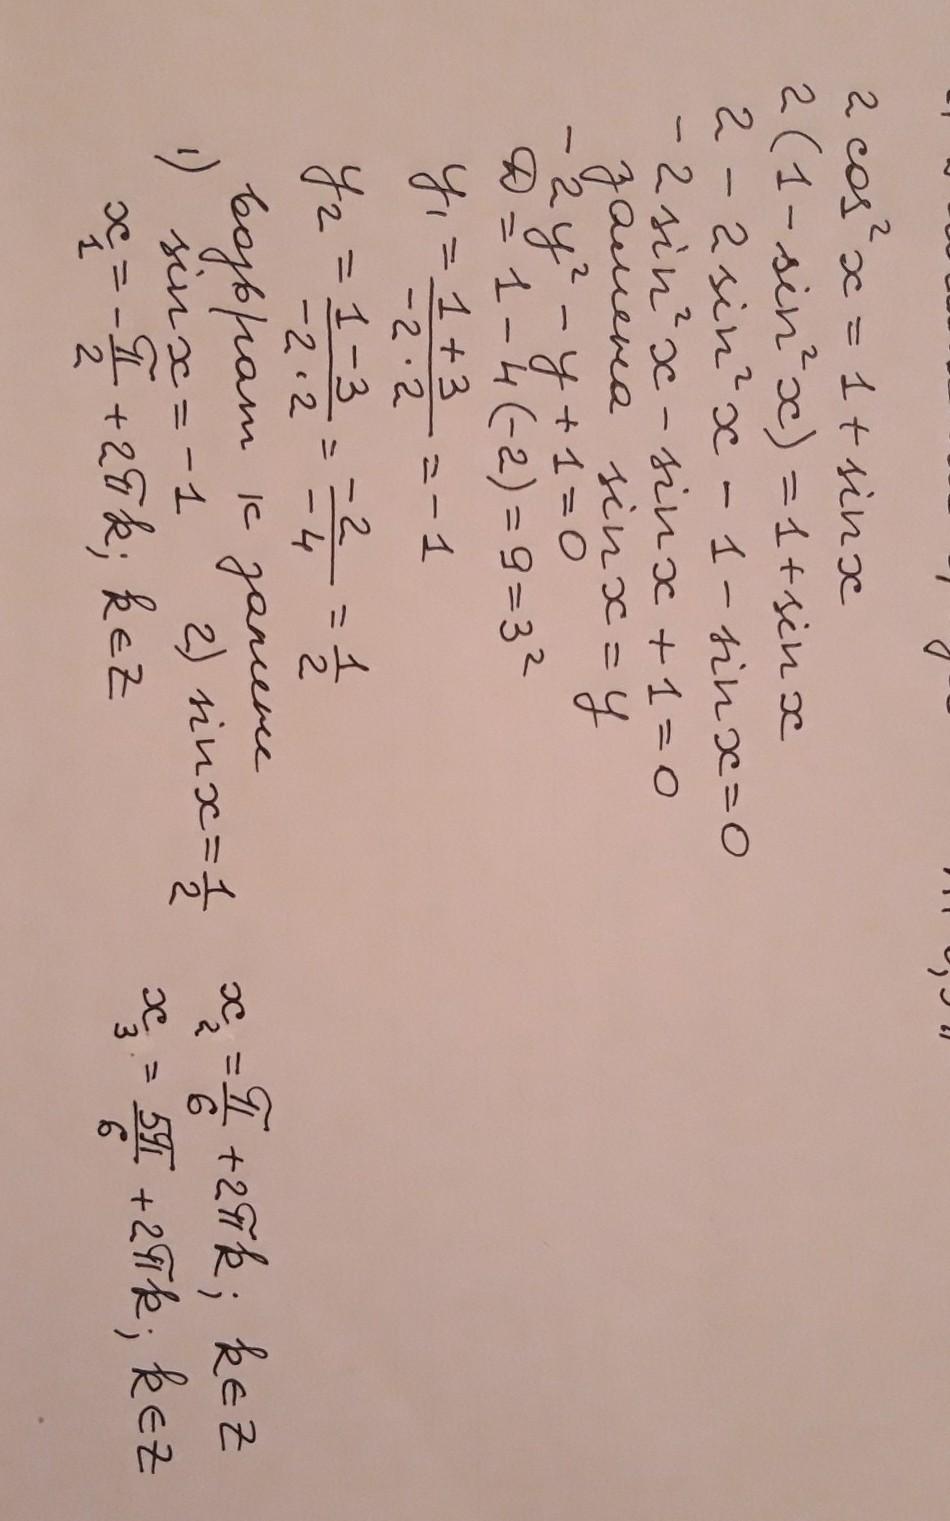 2 cos² x = 1 + sin x
2 (1 - sin² x) = 1 + sin x
2 - 2 sin² x - 1 - sin x = 0
- 2 sin² x - sin x + 1 = 0
замена sin x = y
- 2y² - y + 1 = 0
D = 1 - 4 (-2) = 9 = 3²
y₁ = (1 + 3)/(-2 · 2) = - 1
y₂ = (1 - 3)/(-2 · 2) = (-2)/(-4) = 1/2
возврат к замене
1) sin x = - 1 2) sin x = 1/2 x₂ = π/6 + 2πk; k ∈ Z
x₁ = - π/2 + 2πk; k ∈ Z x₃ = 5π/6 + 2πk; k ∈ Z